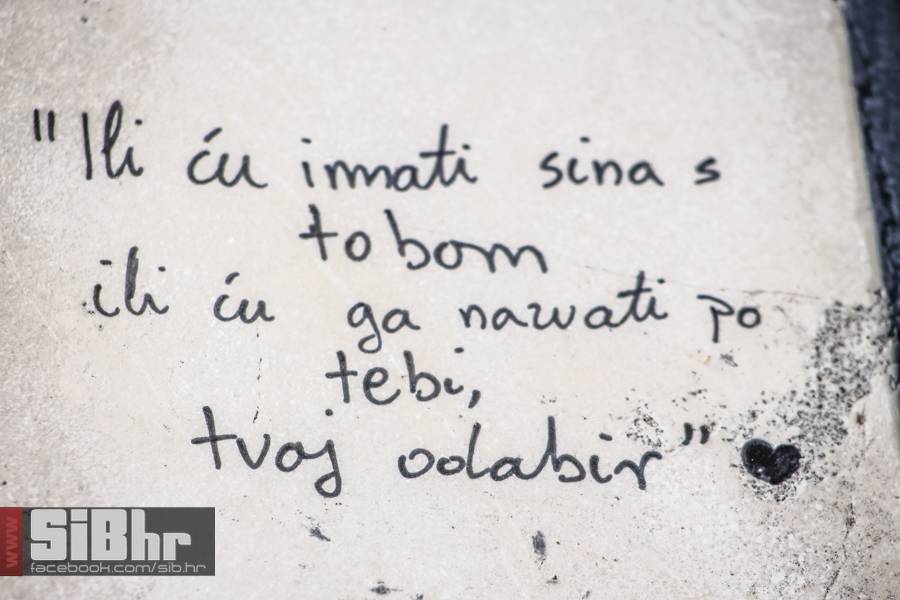 "Ili ću imati sina s
tobom
ili ću ga nazvati po
tebi,
tvoj odabir" ♥
www SiBhr
facebook.com/sib.hr